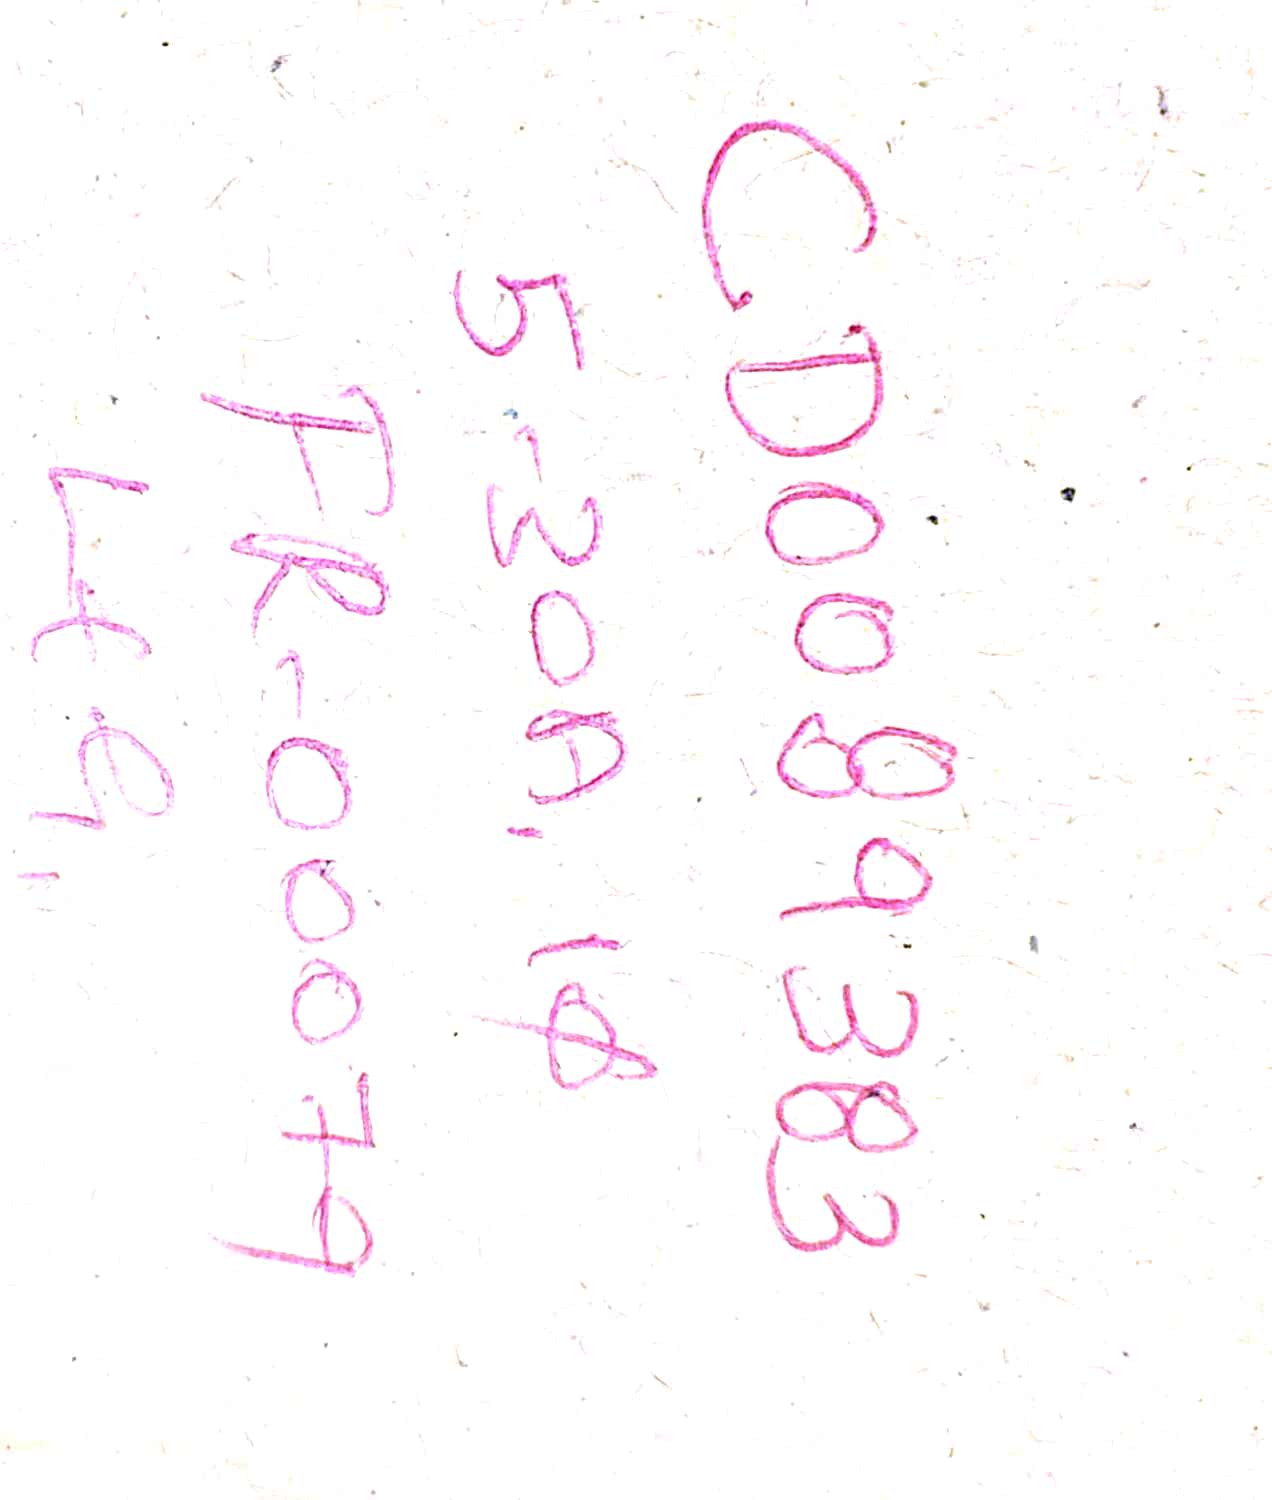 CD0089383
5-30A. 10
TR-00079
Lte.